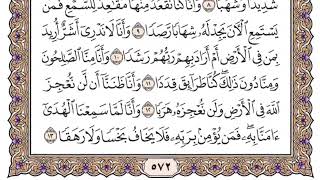 شَدِيدًا وَشُهُبًا ٨ وَأَنَّا كُنَّا نَقْعُدُ مِنْهَا مَقَٰعِدَ لِلسَّمْعِ فَمَن
يَسْتَمِعِ ٱلْـَٔانَ يَجِدْ لَهُۥ شِهَابًا رَّصَدًا ٩ وَأَنَّا لَا نَدْرِىٓ أَشَرٌّ أُرِيدَ
بِمَن فِى ٱلْأَرْضِ أَمْ أَرَادَ بِهِمْ رَبُّهُمْ رَشَدًا ١٠ وَأَنَّا مِنَّا ٱلصَّٰلِحُونَ
وَمِنَّا دُونَ ذَٰلِكَ كُنَّا طَرَآئِقَ قِدَدًا ١١ وَأَنَّا ظَنَنَّآ أَن لَّن نُّعْجِزَ
ٱللَّهَ فِى ٱلْأَرْضِ وَلَن نُّعْجِزَهُۥ هَرَبًا ١٢ وَأَنَّا لَمَّا سَمِعْنَا ٱلْهُدَىٰٓ
ءَامَنَّا بِهِۦ فَمَن يُؤْمِنۢ بِرَبِّهِۦ فَلَا يَخَافُ بَخْسًا وَلَا رَهَقًا ١٣
٥٧٢